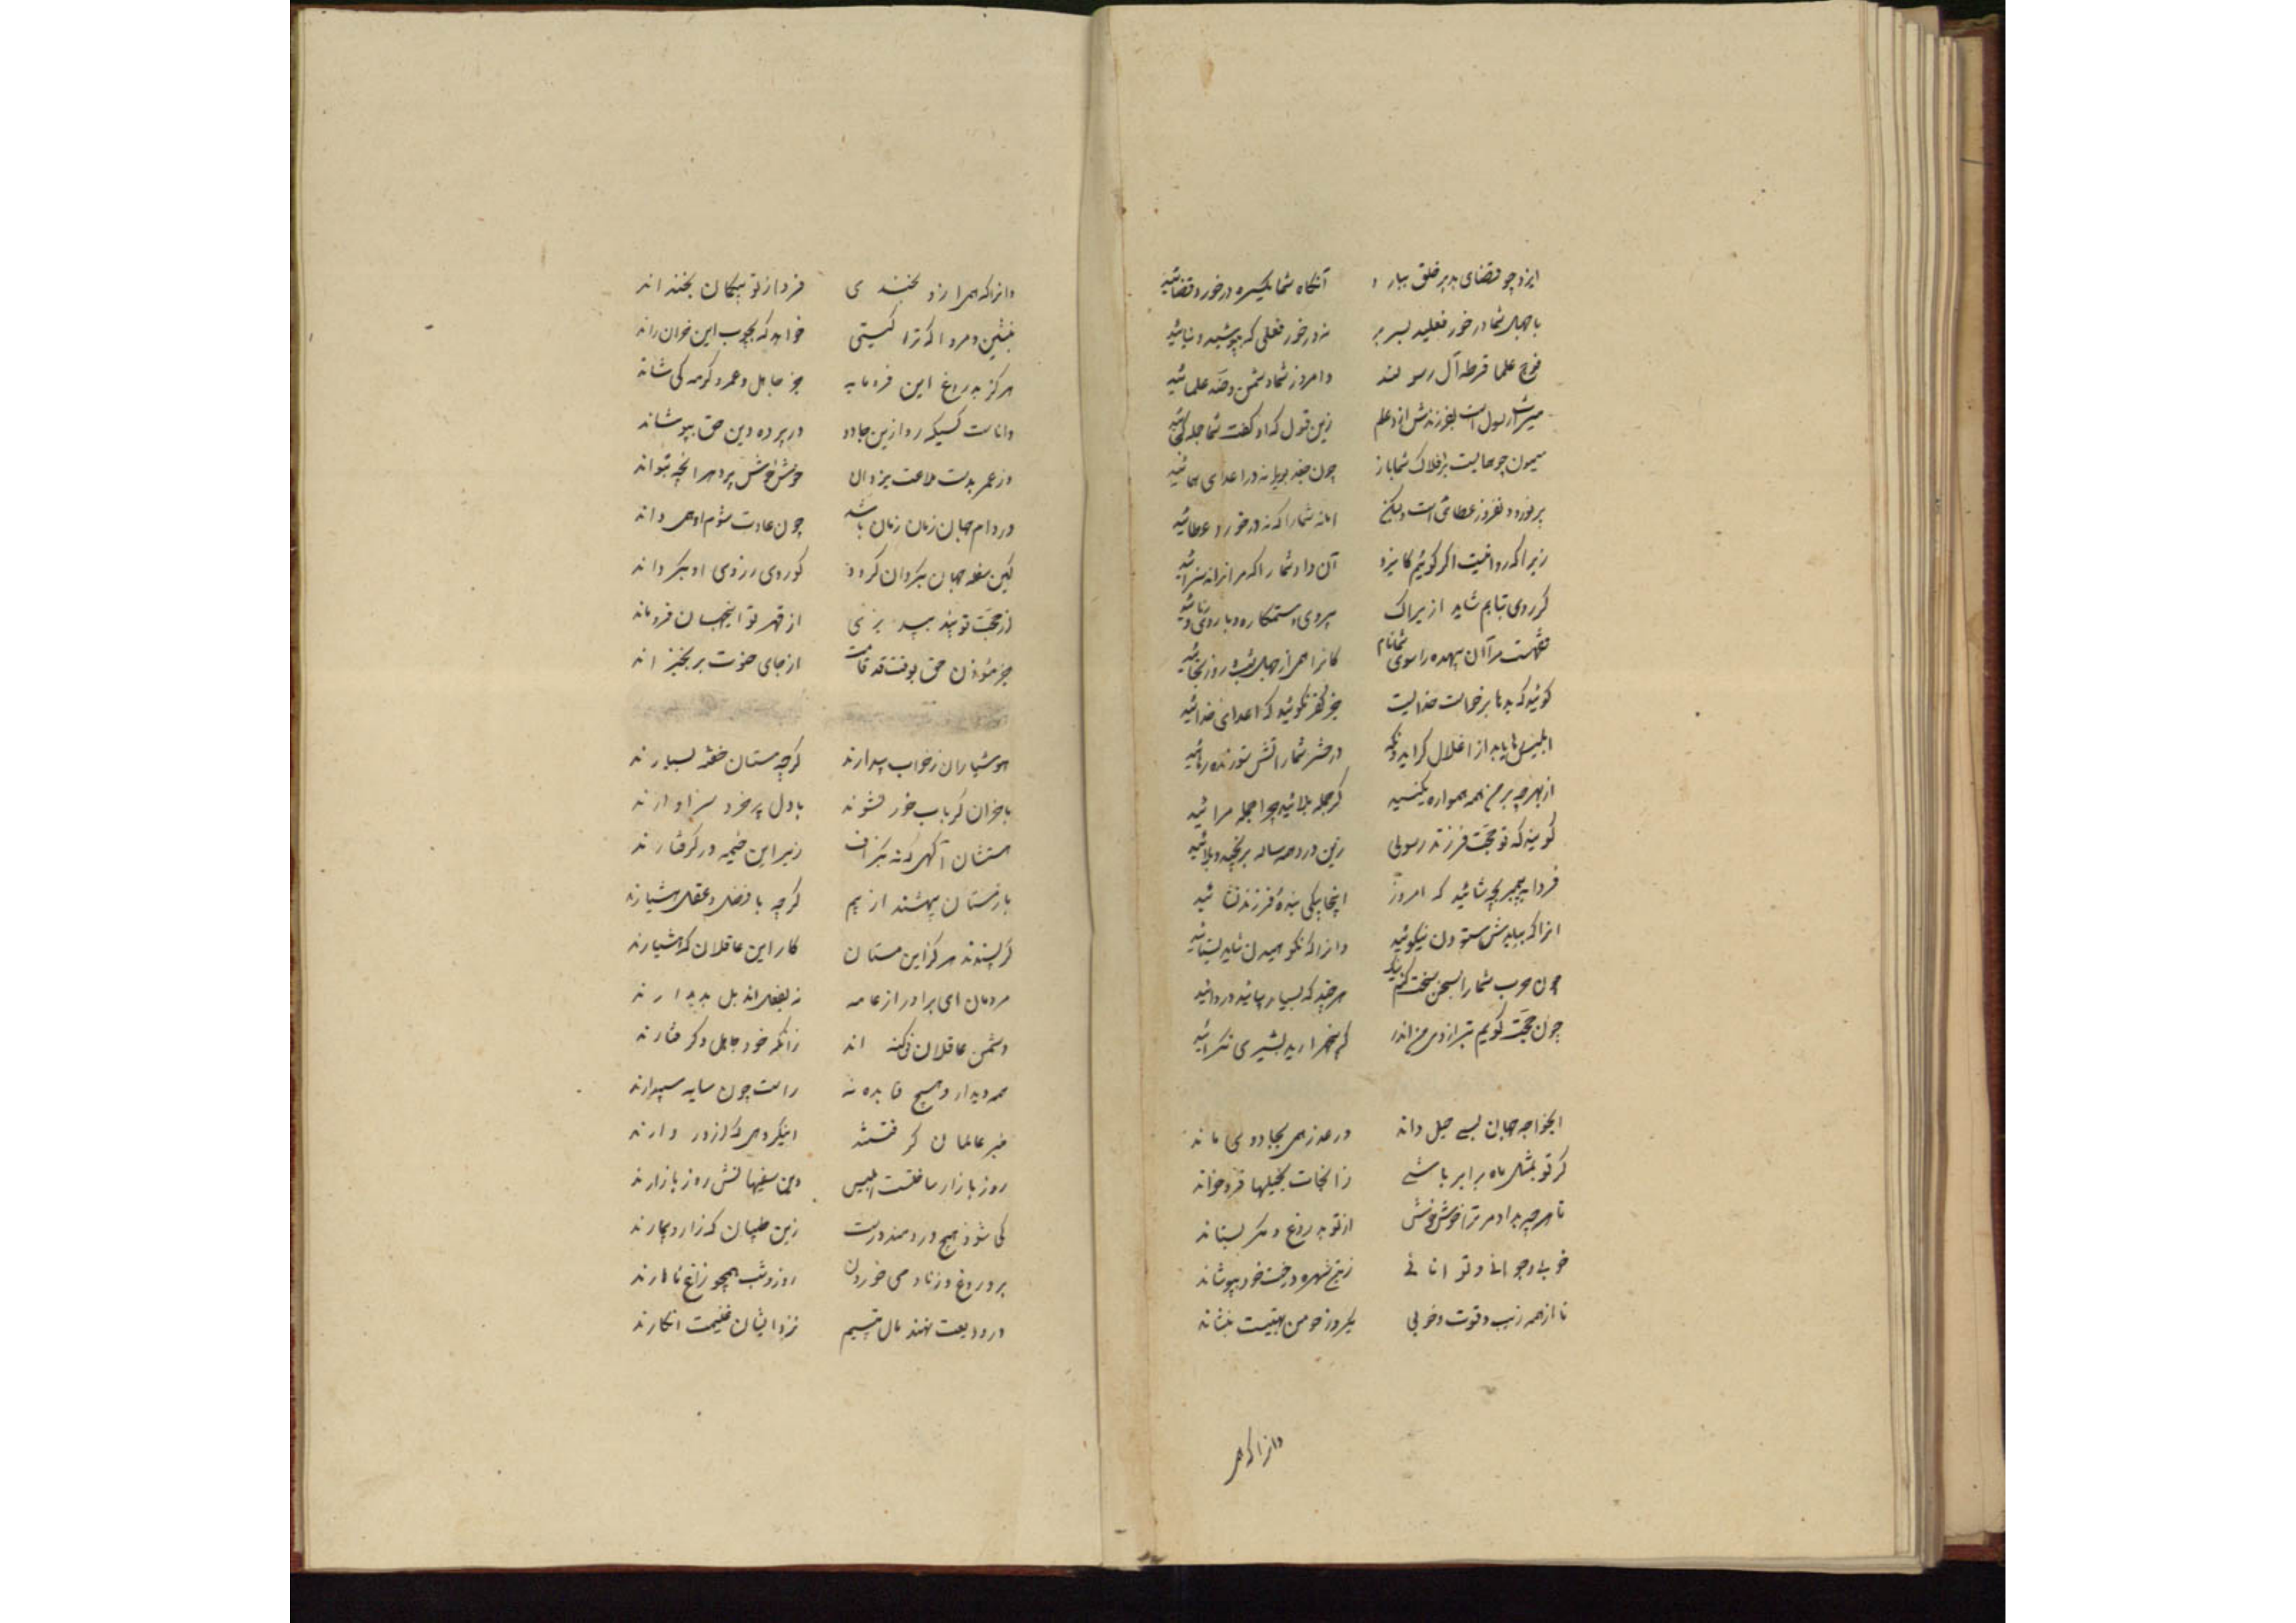 ایزد چو قضای بد بر خلق ببارد آنگاه شما یکسره درخورد قضائید
با جهل شما درخور نعلید بسر بر نه درخور نعلی که بپوشید و بیائید
فوج علما فرقهٔ آل رسولند و امروز شما دشمن و ضد علمائید
میراث رسول است بفرزندش ازو علم زین قول که او گفت شما جمله کجائید
میمون چو همایست بر افلاک شما باز چون جغد بویرانه در اعدای همائید
بر نوروز عطائی است ولیکن آنه شما را که نه درخورد عطائید
زیرا که روا نیست اگر گویم کایزد آن داد شما را که مر انرا نه سزائید
گر روی بتابم شاید ازیراک بیروی و ستمکاره و با روی و ریائید
فخرست مرآن بیهده را سوی شما نام کانرا همی از جهل شب و روز بخائید
گوئید که بدها بر خواست خدائیست جز کفر نگوئید که اعدای خدائید
ابلیس رها یابد از اغلال گر ایدونک در حشر شما ز آتش سوزنده رهائید
از بهر چه بر من همه همواره بکینید گر جمله بلائید چرا جمله مرائید
گویند که تو حجت فرزند رسولی زین درد همه ساله برنج و بلائید
فردا به پیمبر بچه شائید که امروز اینجا بیکی بندهٔ فرزند نشائید
انرا که ببایدش ستودن بنکوئید وانرا که نکوهیدن شاید بستائید
چون حرب شما را بسخن سخت کنم تنگ هر چند که بسیار بپائید روائید
چون حجت گویم بترازوی من اندر گر پنجهزارید پشیزی نگرائید
ای خواجه جهان بسی حیل داند وز غدر همی بجادوی ماند
گر تو بمثل بماه بر باشی زانجات بحیلها فرو خواند
تا هر چه بداد مر ترا خوش خوش از تو بدروغ و مکر بستاند
خوبی و جوانی و توانائی زین شهره درخت خود بپوشاند
تا از همه زیب و قوت و خوبی یکروز چو من تهیت بنشاند
وانرا که همی
وانرا که همی ازو بخندی فردا ز تو بیگمان بخنداند
بنشین و مرو اگر ترا گیتی خواهد که بچوب این خران راند
هرگز بدروغ این فرومایه جز جاهل و غمر و گربه کی شاند
داناست کسیکه رو ازین جادو در پردهٔ دین حق بپوشاند
وز عمر بدست طاعت یزدان خوش خوش ببرد هر آنچه بتواند
در دام جهان زمان زمان باشد چون عادت شوم او همی داند
لیکن سفه جهان نگرداند کو روی ز روی او بگرداند
از حجت تو پند بپذیر از قهر تو اینجهان فروماند
جز مؤذن حق بوقت قد قامت از جای خوت بر نخیزاند
هوشیاران ز خواب بیدارند گرچه مستان خفته بسیارند
با خران گر بآب خور نشوند با دل پر خرد سزاوارند
هستشان آگهی که نه بگزاف زیر این خیمه در گرفتارند
باز مستان بیهشند ارنیم گرچه با فضل و عقل هشیارند
گر پسندند هرگز این مستان کار این عاقلان که هشیارند
مردمان ای برادر از عامه نه بفعل اند بل بدیدارند
دشمن عاقلان بی گنه اند زانکه خود جاهل و گنه کارند
همه دیدار و هیچ فایده نه راست چون سایهٔ سپیدارند
منبر عالمان گرفتستند این گروهی که از در دارند
روز بازار ساختست ابلیس وین سفیهانش روز بازارند
کی شود هیچ دردمند درست زین طبیبان که زار و بیمارند
بر دروغ و زنا و می خوردن روز و شب همچو زاغ ناهارند
ور ودیعت نهند مال یتیم نزد ایشان غنیمت انگارند